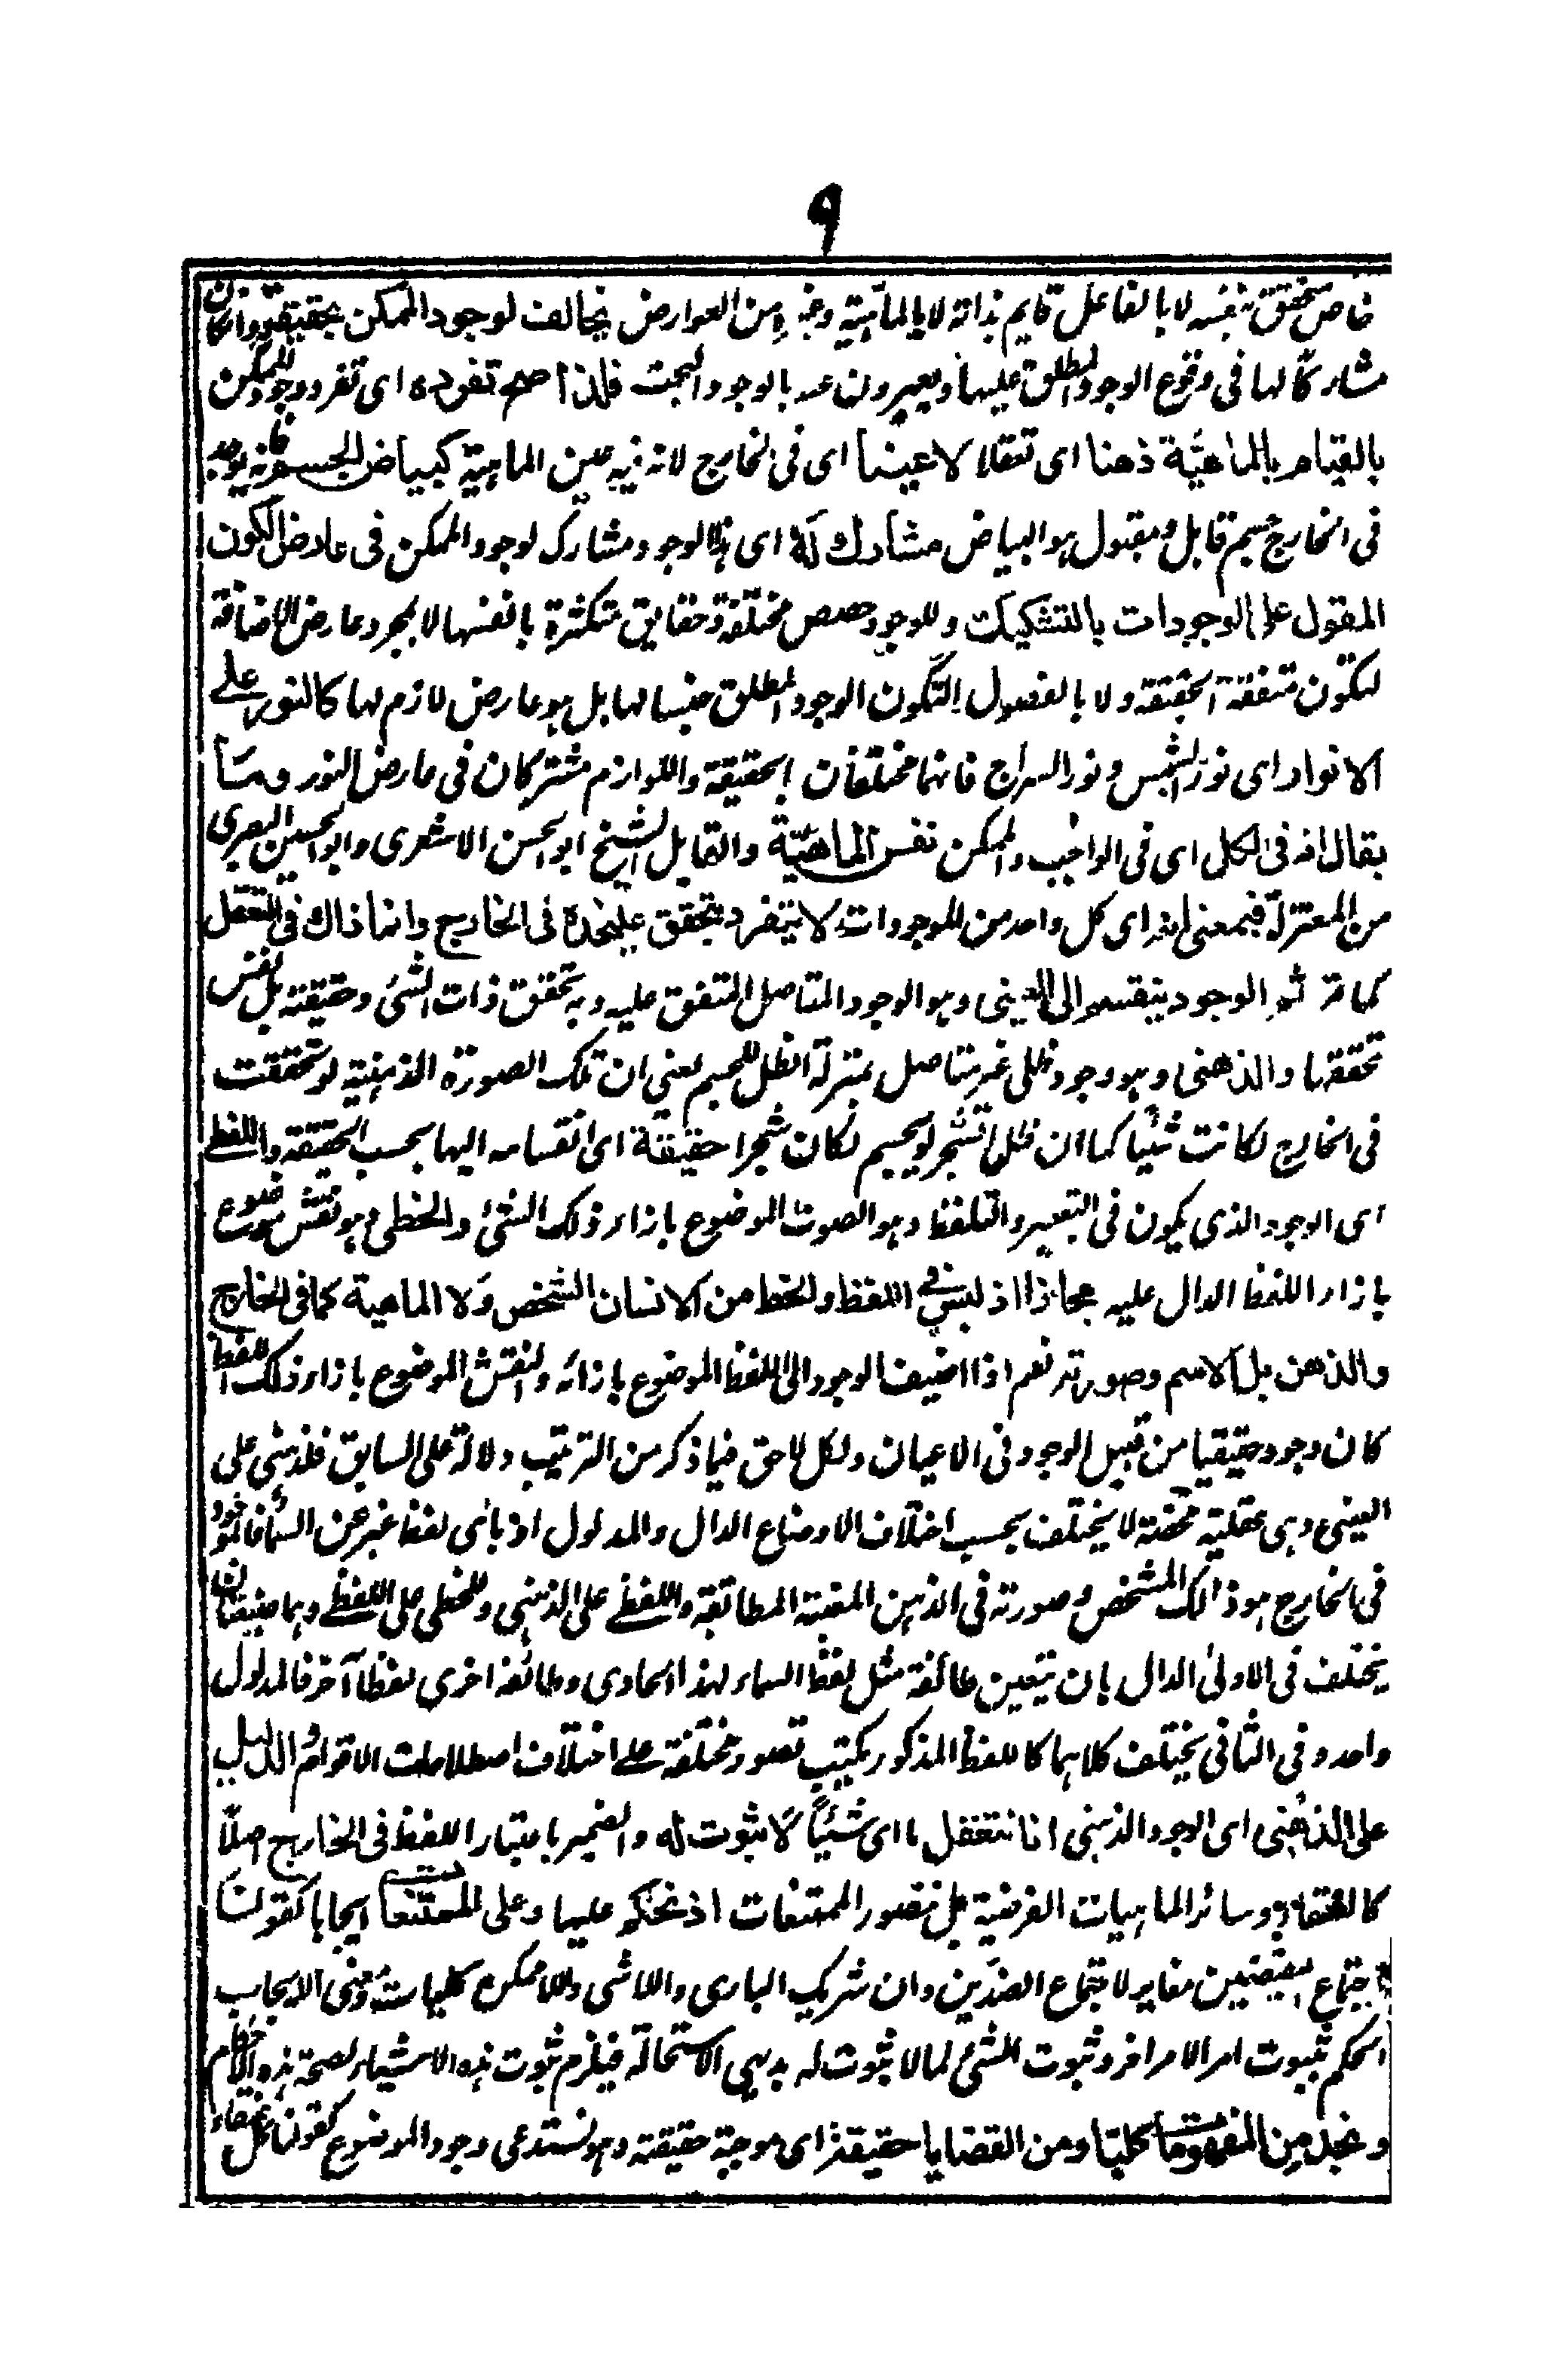 ٩
خاص متحقق بنفسه لا بالفاعل قايم بذاته لا بالماهية وغيره من العوارض يخالف لوجود الممكن بحقيقته وان كان
مشاركا لها فى وقوع الوجود المطلق عليها ويعبرون عنه بالوجود البحت فلذا صح تفرده اى تفرد وجود الممكن
بالقيام بالماهية ذهنا اى تعقلا لا عينا اى فى الخارج لانه فيه عين الماهية كبياض الجسم فانه يوجد
فى الخارج جسم قابل ومقبول هو البياض مشارك له اى هذا الوجود مشارك لوجود الممكن فى عارض الكون
المقول على الوجودات بالتشكيك وللوجود حصص مختلفة وحقايق متكثرة بانفسها لا بمجرد عارض الاضافة
لتكون متفقة الحقيقة ولا بالفصول لتكون الوجود المطلق جنسا لها بل هو عارض لازم لها كالنور على
الانوار اى نور الشمس ونور السراج فانهما مختلفان بالحقيقة واللوازم مشتركان فى عارض النور وما
يقال انه فى الكل اى فى الواجب والممكن نفس الماهية والقايل الشيخ ابو الحسن الاشعرى وابو الحسين البصرى
من المعتزلة فبمعنى انه اى كل واحد من الموجودات لا يتفرد بتحقق عليحدة فى الخارج وانما ذاك فى التعقل
كما مر ثم الوجود ينقسم الى العينى وهو الوجود المتاصل المتفق عليه وبه تحقق ذات الشئ وحقيقته بل نفس
تحققها والذهنى وهو وجود ظلى غير متاصل بمنزلة الظل للجسم يعنى ان تلك الصورة الذهنية لو تحققت
فى الخارج لكانت شيئا كما ان ظل الشجر لو تجسم لكان شجرا حقيقة اى انقسامه اليها بحسب الحقيقة واللفظى
اى الوجود الذى يكون فى التعبير والتلفظ وهو الصوت الموضوع بازاء ذلك الشئ والخطى وهو نقش موضوع
بازاء اللفظ الدال عليه مجازا اذ ليس فى اللفظ والخط من الانسان الشخص ولا الماهية كما فى الخارج
والذهن بل الاسم وصورته نعم اذا اضيف الوجود الى اللفظ الموضوع بازائه والنقش الموضوع بازاء ذلك اللفظ
كان وجودا حقيقيا من قبيل الوجود فى الاعيان ولكل لاحق فيما ذكر من الترتيب دلالة على السابق فللذهنى على
العينى وهى عقلية محضة لا يختلف بحسب اختلاف الاوضاع الدال والمدلول اذ باى لفظ عبر عن السماء فالموجود
فى الخارج هو ذالك المشخص وصورته فى الذهن المطابقة واللفظى على الذهنى وللخطى على اللفظى وهما
يختلف فى الاولى الدال بان يتعين طائفة مثل لفظ السماء لهذا السماوى وطائفة اخرى لفظا آخر فالمدلول
واحد وفى الثانى يختلف كلاهما كاللفظ المذكور يكتب بصور مختلفة على اختلاف اصطلاحات الاقوام والدليل
على الذهنى اى الوجود الذهنى انا نتعقل ما اى شيئا لا ثبوت له والضمير باعتبار اللفظ فى الخارج اصلا
كالعنقاء وسائر الماهيات الفرضية بل نتصور الممتنعات اذ نحكم عليها وعلى الممتنعات ايجابا كقولنا
اجتماع النقيضين مغاير لاجتماع الضدين وان شريك البارى واللاشى واللاممكن كليات ومعنى الايجاب
الحكم بثبوت امر لامر اخر وثبوت الشئ لما لا ثبوت له بديهى الاستحالة فيلزم ثبوت هذه الاشياء لصحة هذه الاحكام
ونجد من المفهومات كليا ومن القضايا حقيقة اى موجبة حقيقية وهو تستدعى وجود الموضوع كقولنا كل عنقاء